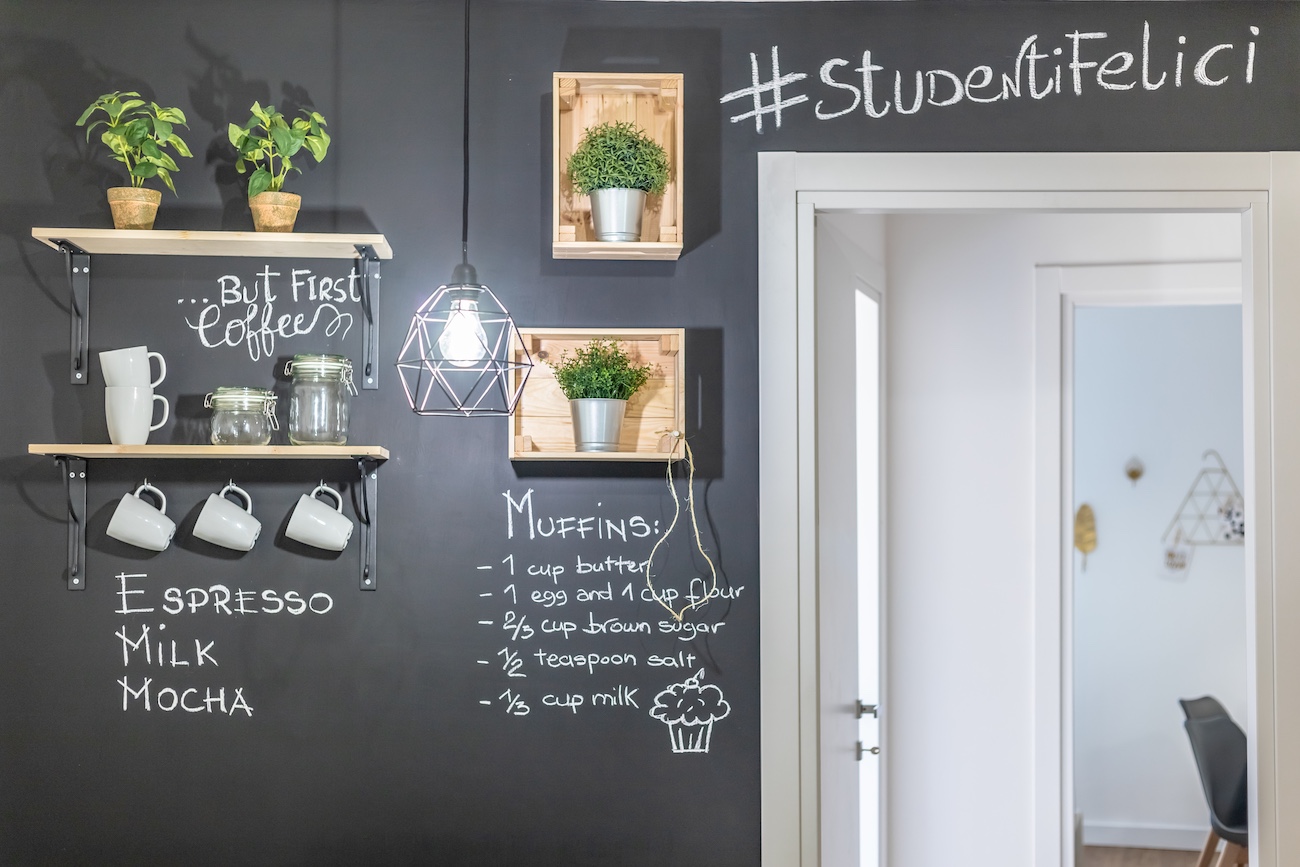 #StudentiFelici
...But First
Coffee
Espresso
Milk
Mocha
Muffins:
- 1 cup butter
- 1 egg and 1 cup flour
- 2/3 cup brown sugar
- 1/2 teaspoon salt
- 1/3 cup milk